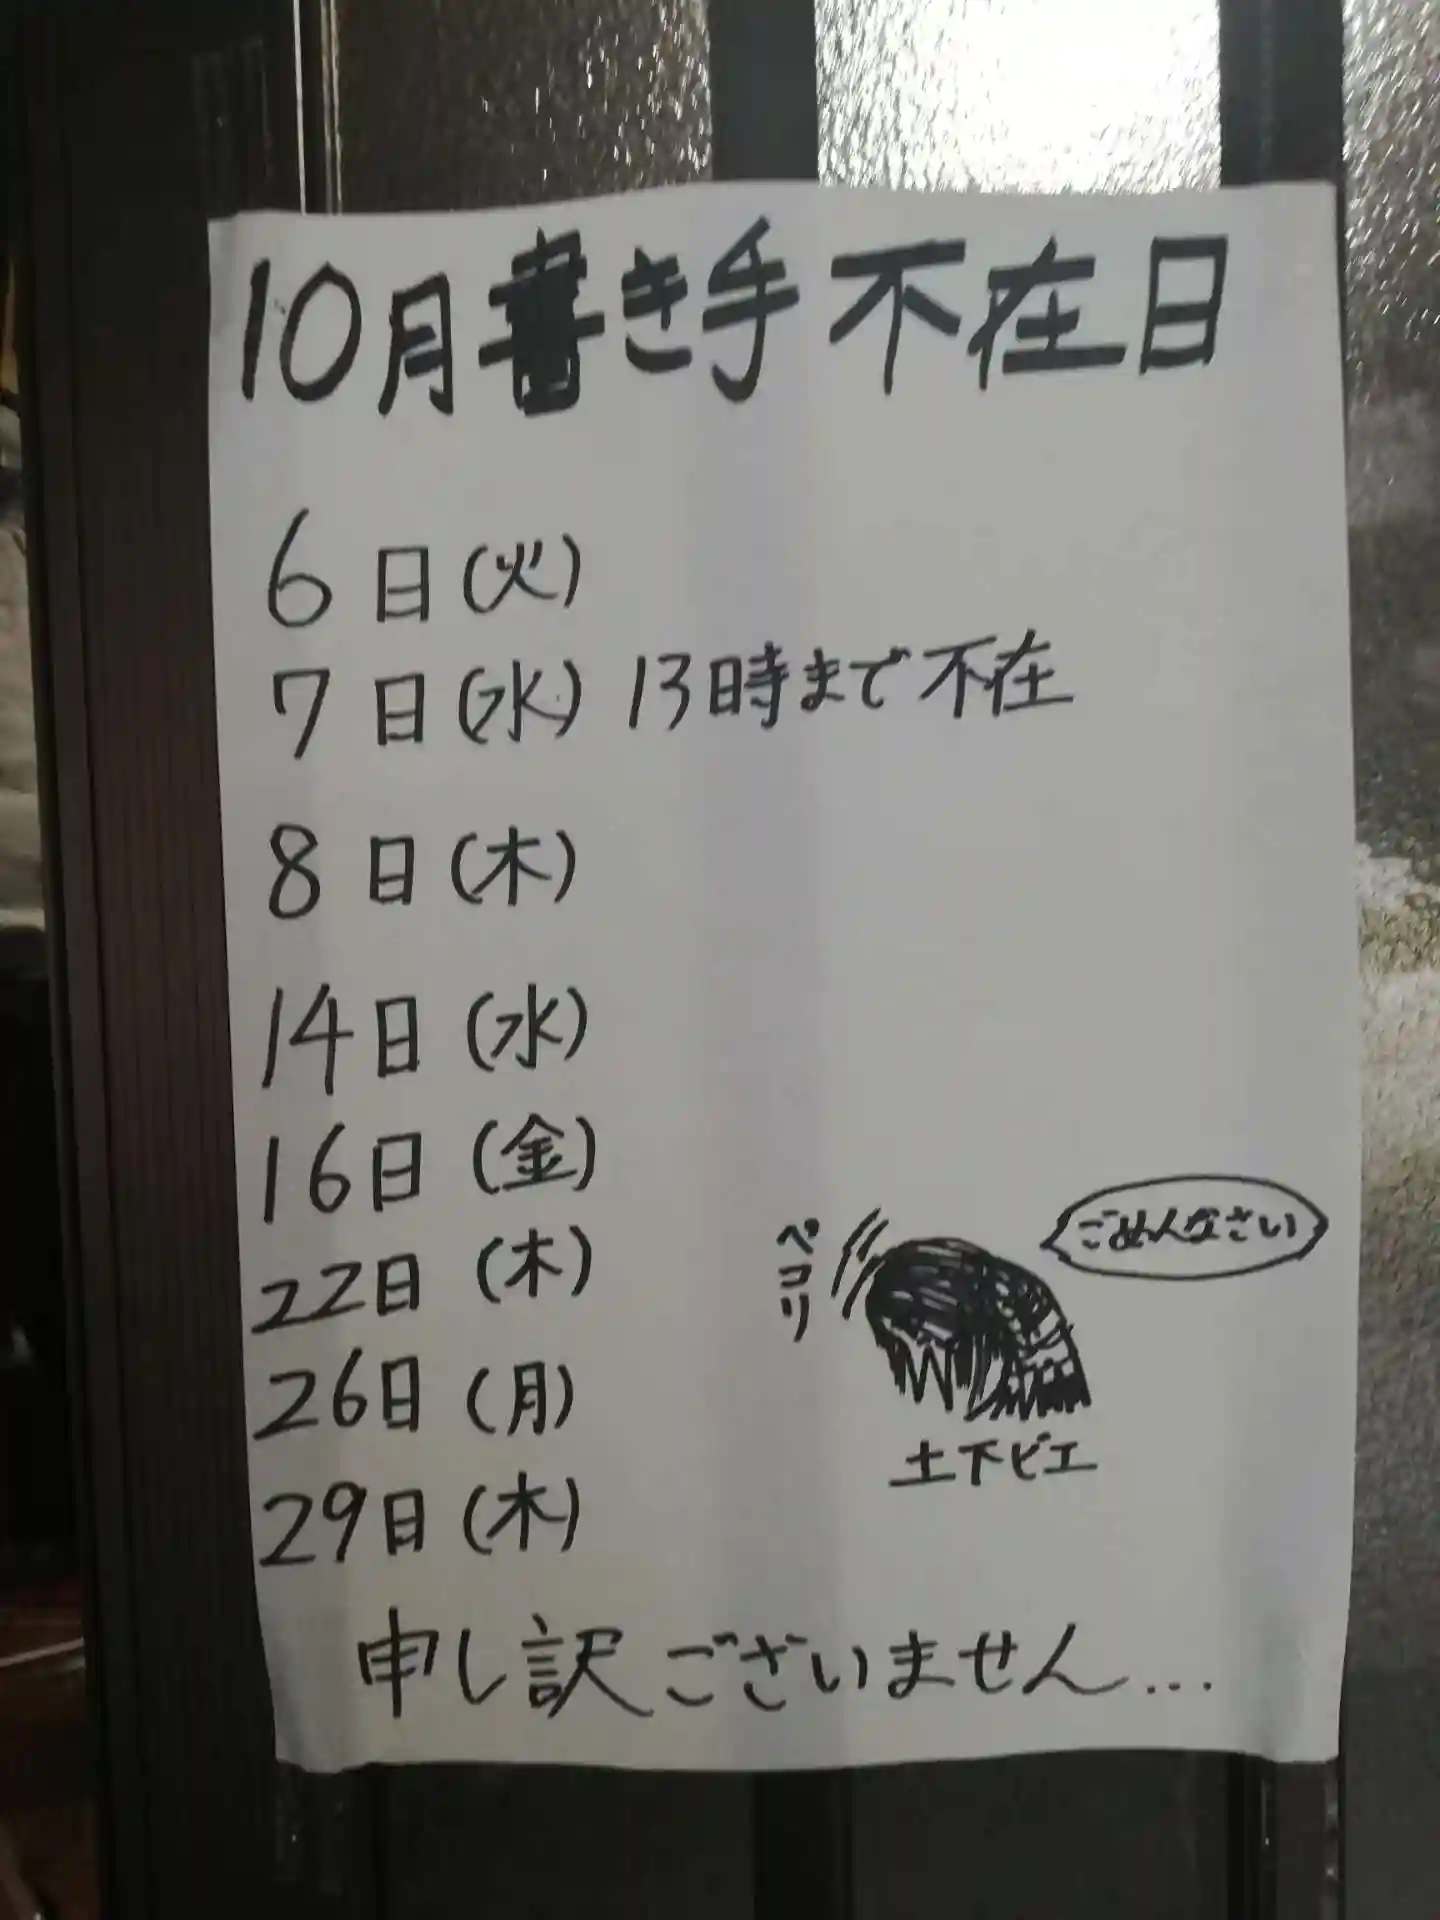 10月書き手不在日
6日(火)
7日(水) 13時まで不在
8日(木)
14日(水)
16日(金)
22日(木)
26日(月)
29日(木)
ペコリ
ごめんなさい
土下ビエ
申し訳ございません...